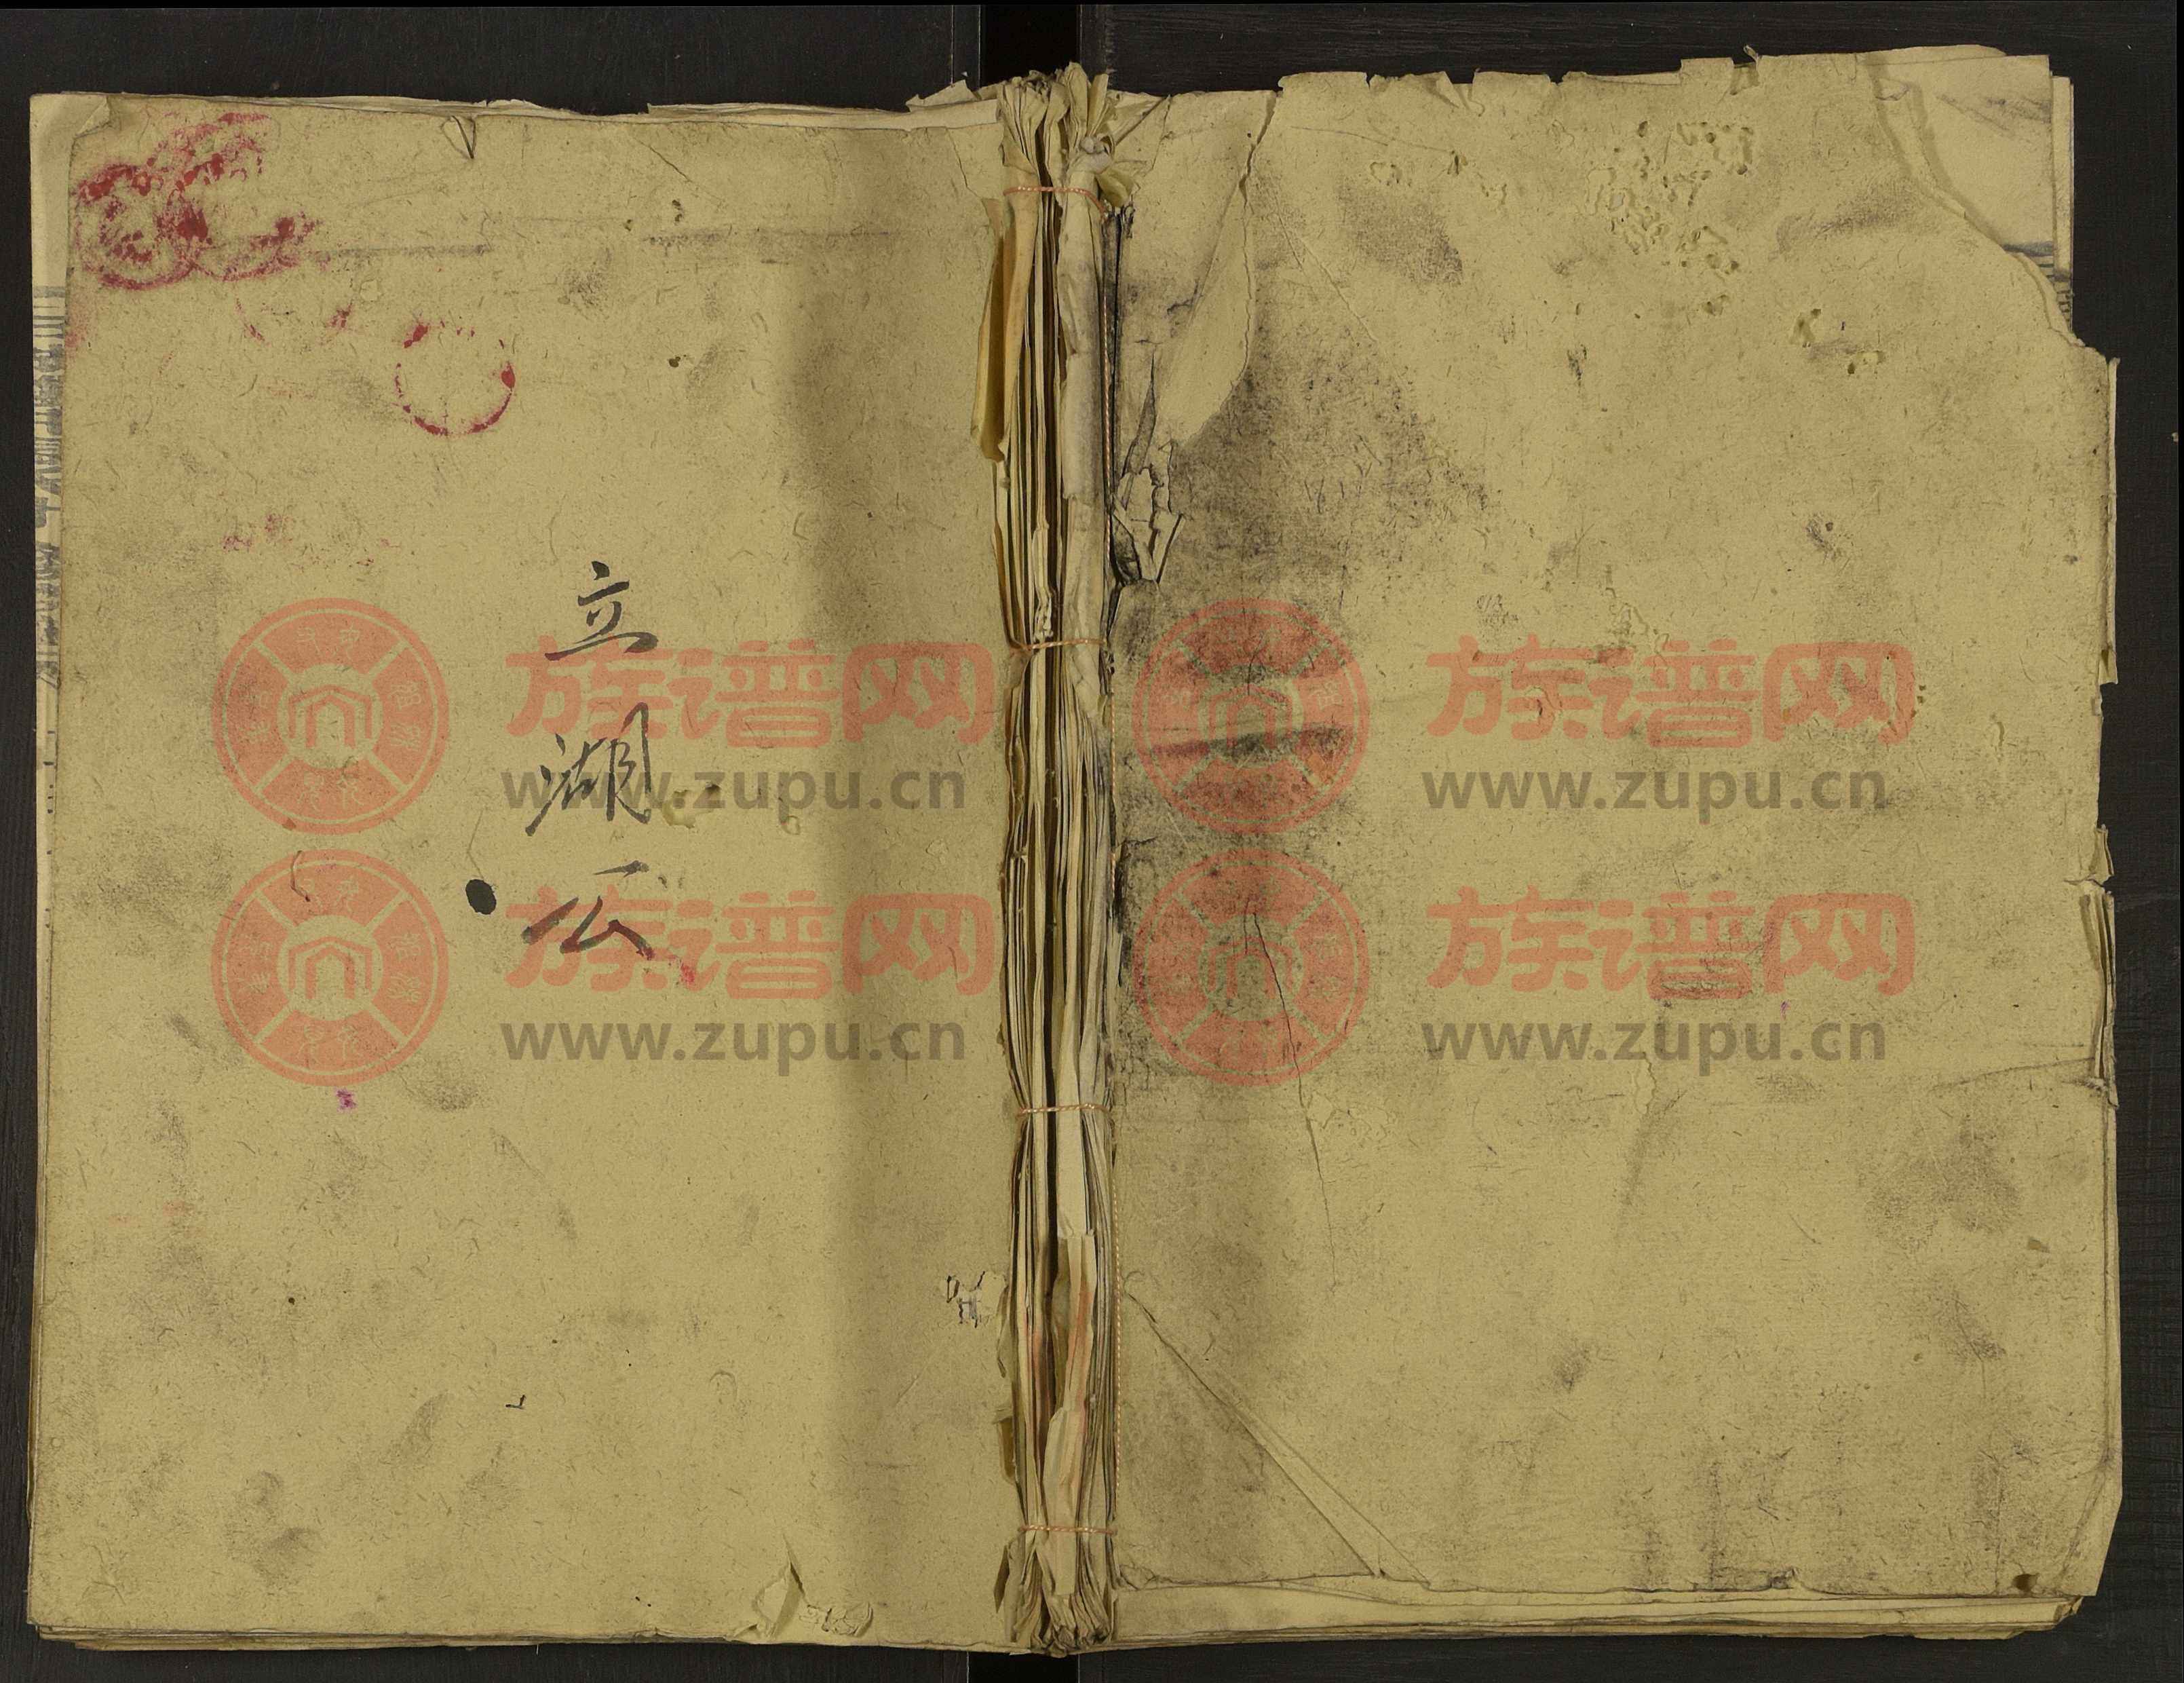 立湖公
族谱网
www.zupu.cn
族谱网
www.zupu.cn
族谱网
www.zupu.cn
族谱网
www.zupu.cn